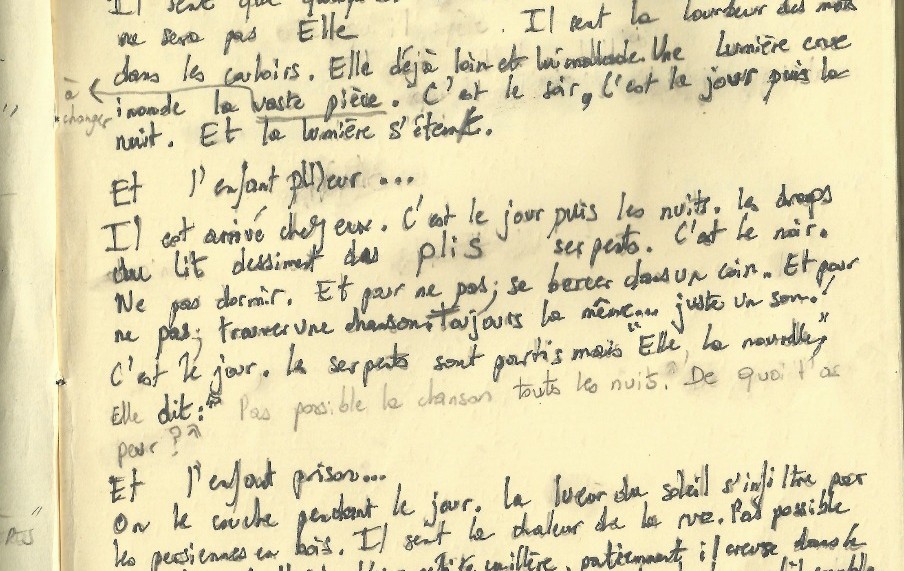 Il sent que quelque
ne sera pas Elle . Il sent la lourdeur des mots
dans les couloirs. Elle déjà loin et lui malade. Une lumière crue
à inonde la vaste pièce. C'est le soir, C'est le jour puis la
changer
nuit. Et la lumière s'éteint.
Et l'enfant pleur ...
Il est arrivé chez eux. C'est le jour puis les nuits. Les draps
du lit dessinent des plis serpents. C'est le noir.
Ne pas dormir. Et pour ne pas; se bercer dans un coin.. Et pour
ne pas; trouver une chanson. Toujours la même... juste un son..!
C'est le jour. Le serpents sont partis mais "Elle, la nouvelle,"
Elle dit: "Pas possible la chanson toutes les nuits." De quoi t'as
peur?"
Et l'enfant prison...
On le couche pendant le jour. La lueur du soleil s'infiltre par
les persiennes en bois. Il sent la chaleur de la rue. Pas possible
patiemment, il creuse dans le